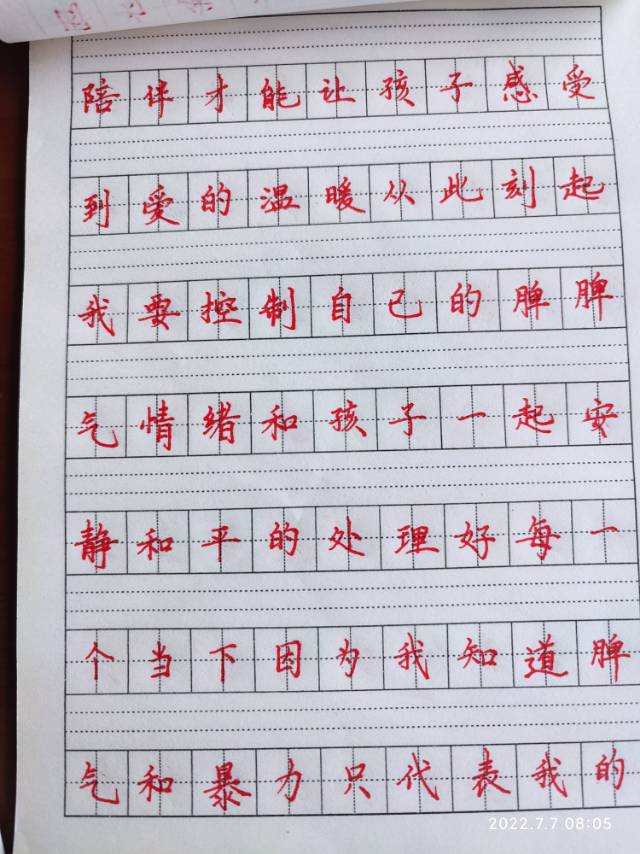 陪伴才能让孩子感受
到受的温暖从此刻起
我要控制自己的脾脾
气情绪和孩子一起安
静和平的处理好每一
个当下因为我知道脾
气和暴力只代表我的
2022.7.7 08:05